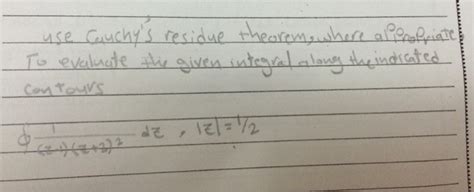 use Cauchy's residue theorem, where appropriate,
To evaluate the given integral along the indicated
contours
∮ 1/((z-1)(z+2)²) dz , |z|=1/2